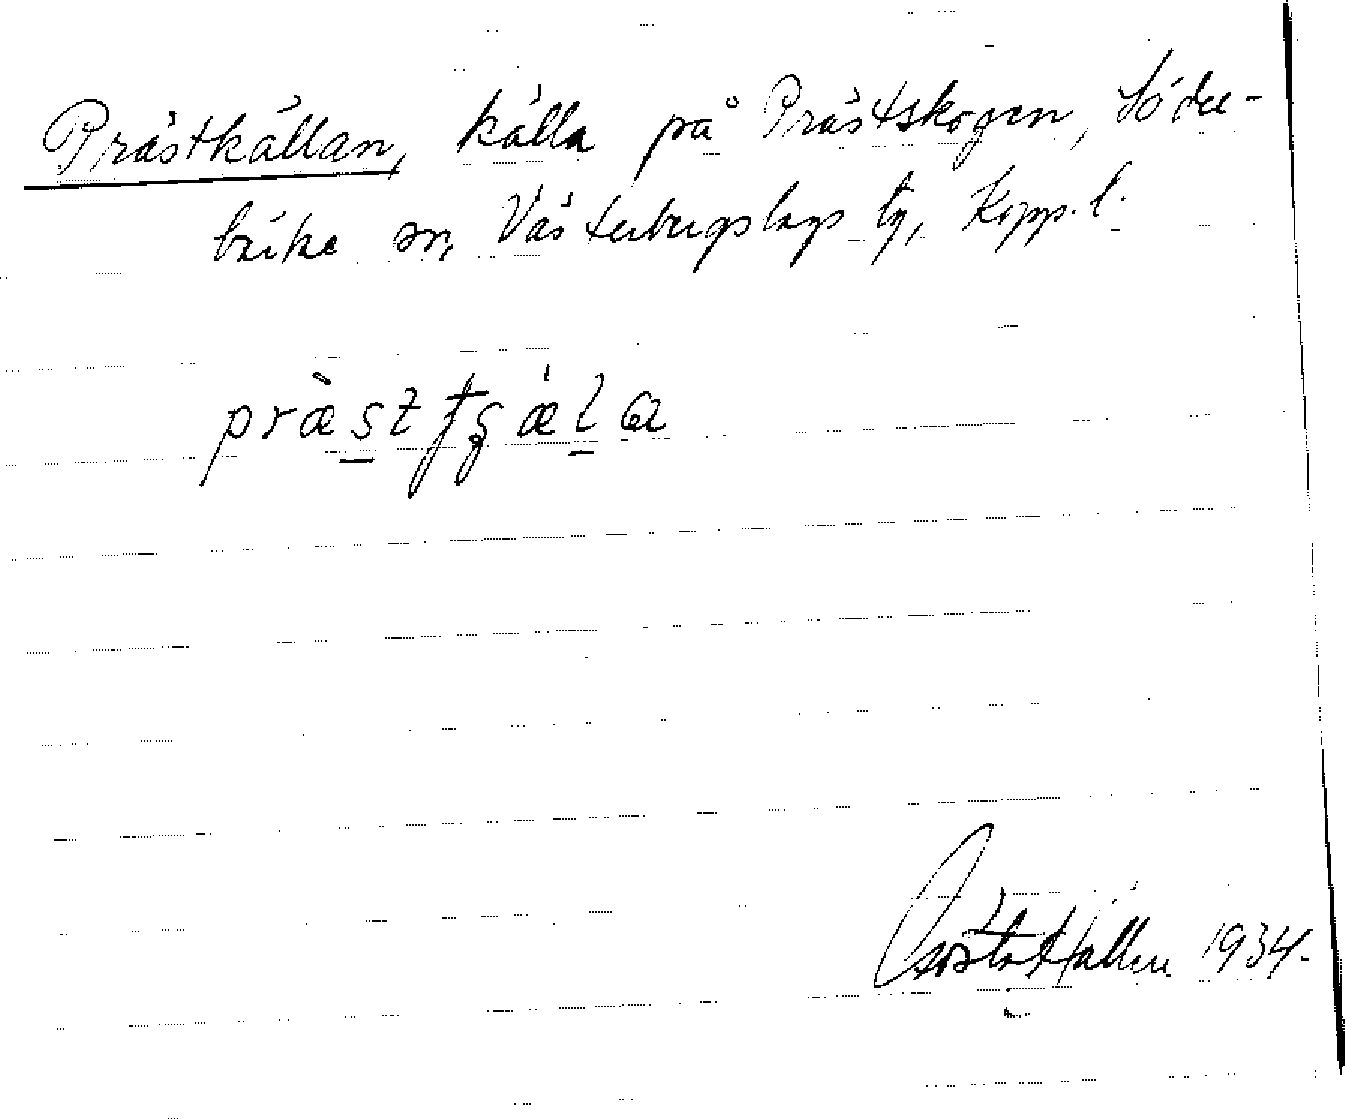 Prästkällan, källa på Prästskogen, Söder-
bärke sn, Västerbergslags tg, Kopp. l.
præ̀stʃʂæ̀la
Gösta Hallen 1934.